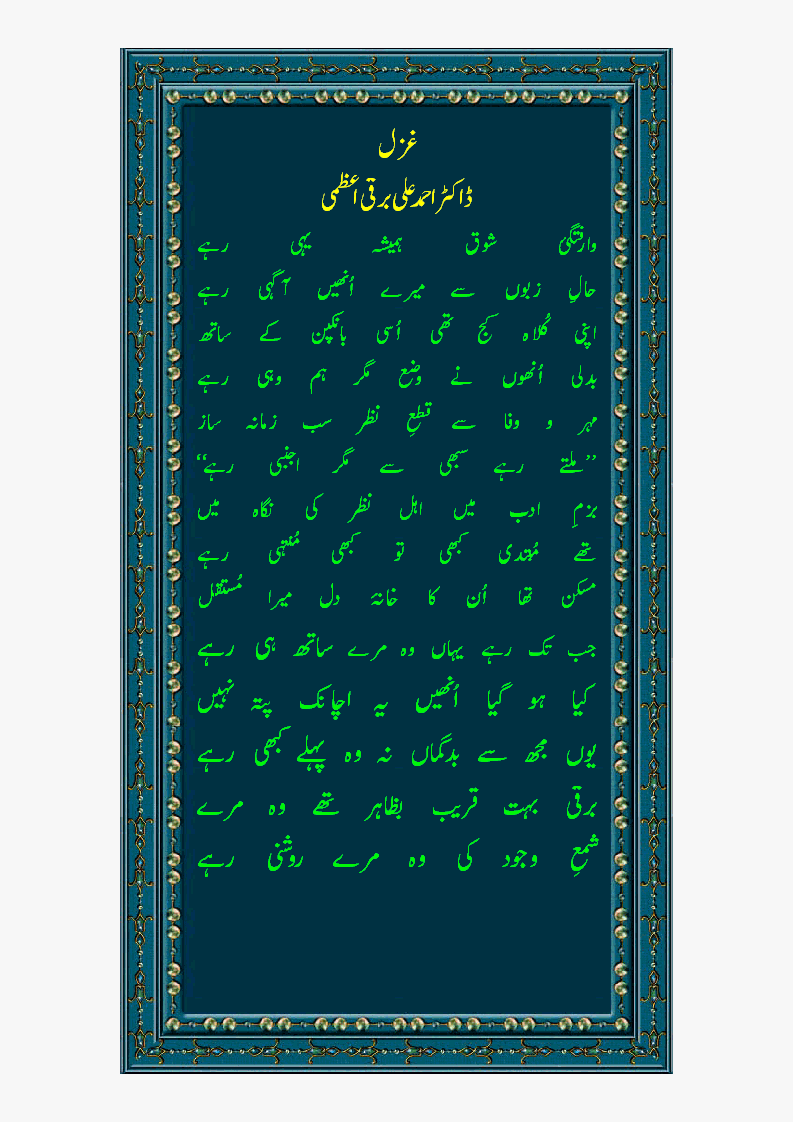 غزل
ڈاکٹر احمد علی برقی اعظمی
وارفتگیٔ شوق ہمیشہ یہی رہے
حالِ زبوں سے میرے اُنھیں آگہی رہے
اپنی کُلاہ کج تھی اُسی بانکپن کے ساتھ
بدلی اُنھوں نے وضع مگر ہم وہی رہے
مہر و وفا سے قطعِ نظر سب زمانہ ساز
’’ملتے رہے سبھی سے مگر اجنبی رہے‘‘
بزمِ ادب میں اہل نظر کی نگاہ میں
تھے مُبتدی کبھی تو کبھی مُنتہی رہے
مسکن تھا اُن کا خانۂ دل میرا مُستقل
جب تک رہے یہاں وہ مرے ساتھ ہی رہے
کیا ہو گیا اُنھیں یہ اچانک پتہ نہیں
یوں مجھ سے بدگماں نہ وہ پہلے کبھی رہے
برقی بہت قریب بظاہر تھے وہ مرے
شمعِ وجود کی وہ مرے روشنی رہے